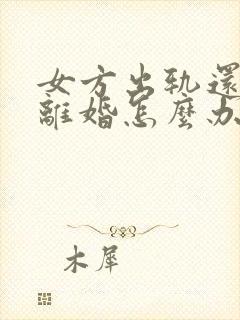 女方出轨還
離婚怎麼办
木犀